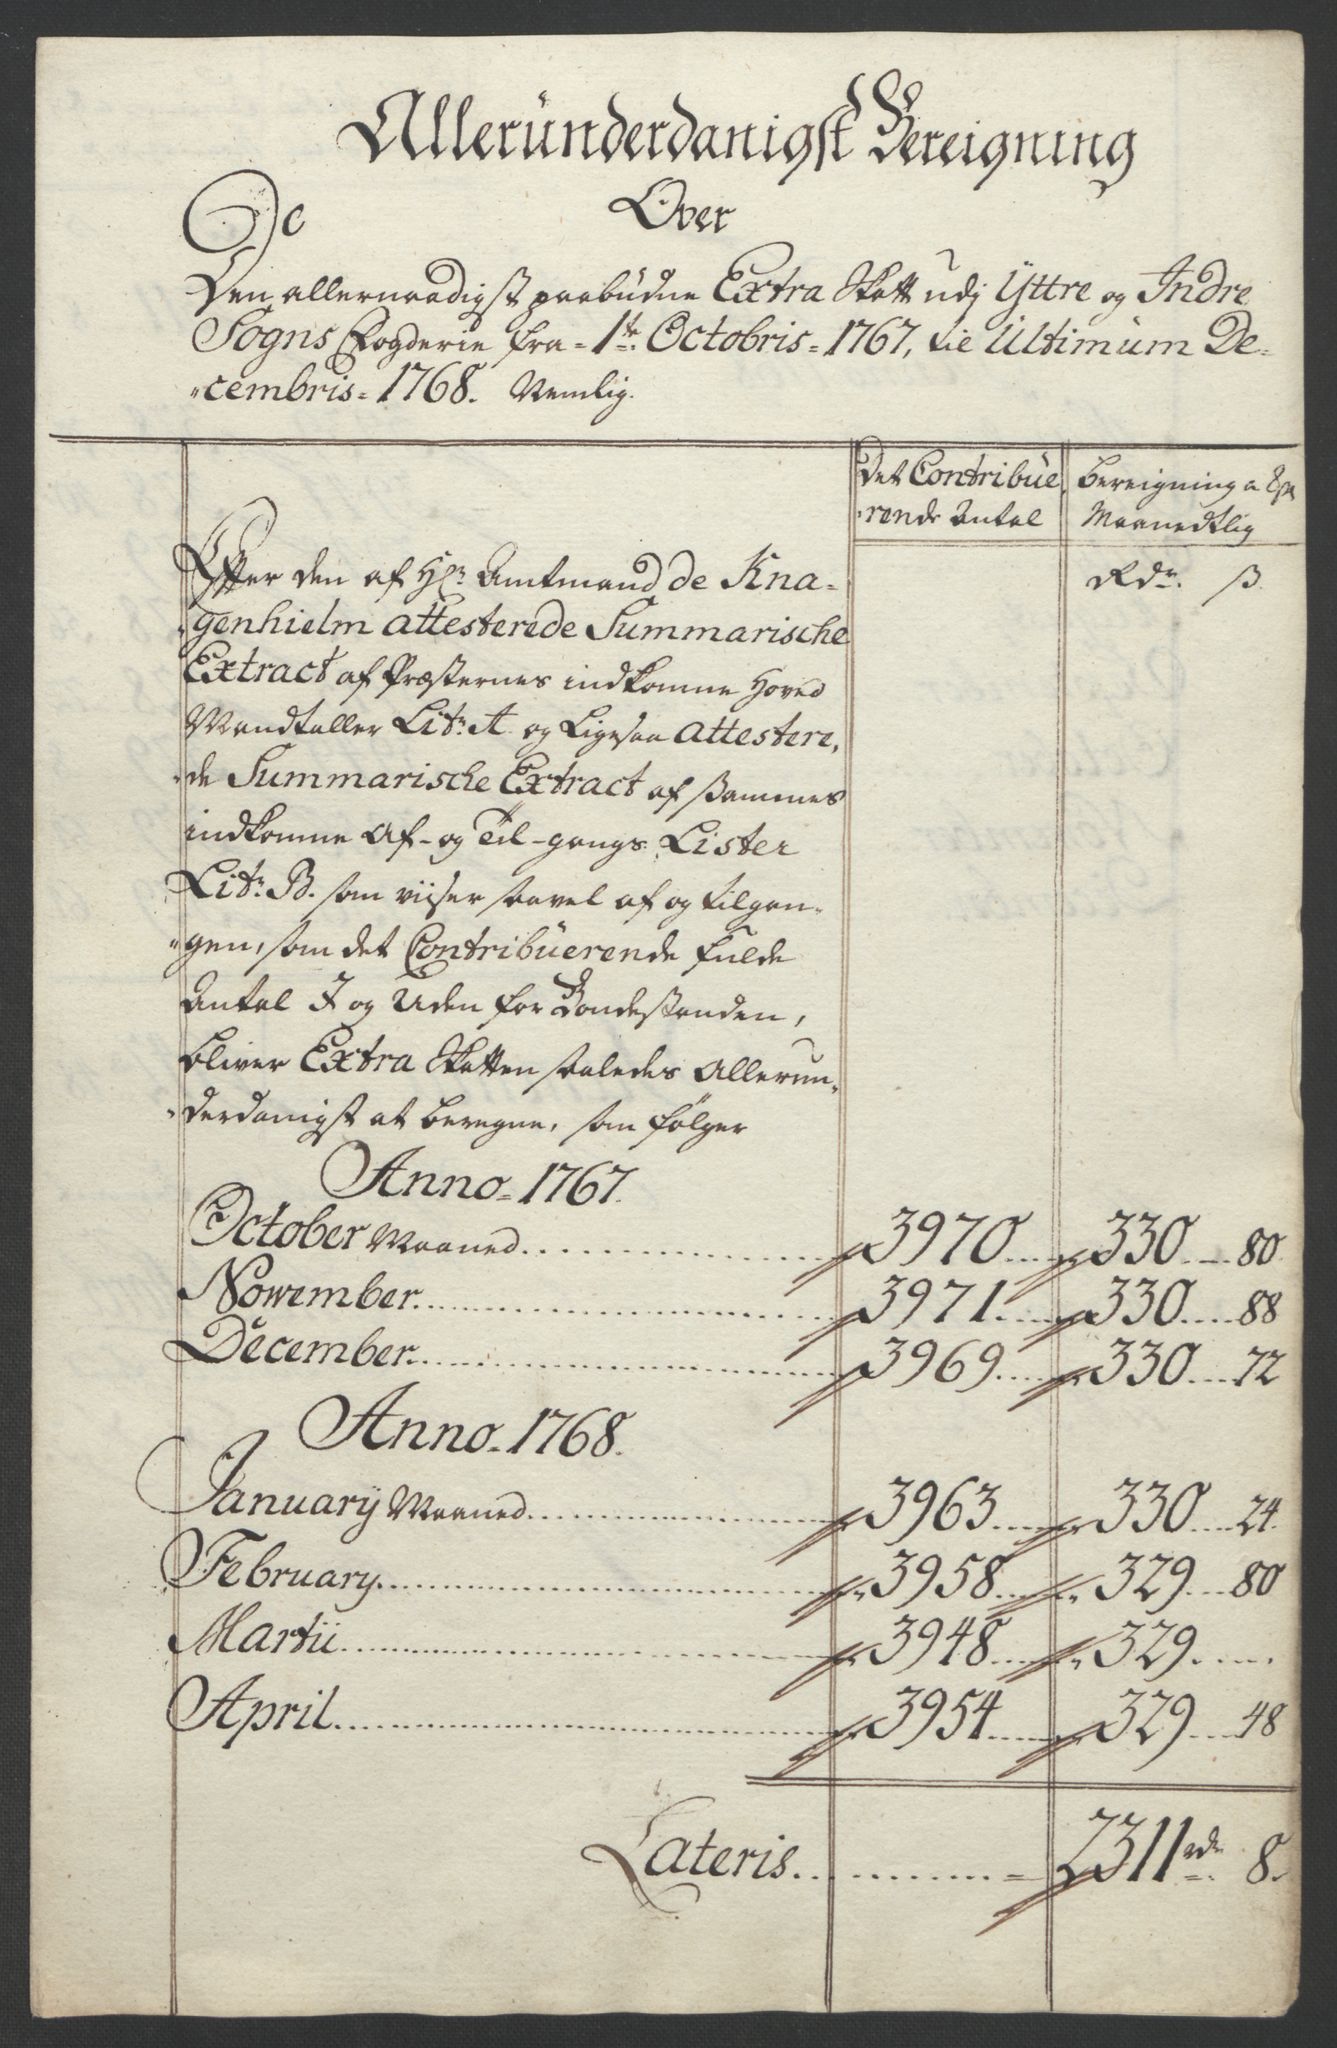 Alleründerdanigst Bereigning
Over
Den allernaadigst paabüdne Extra Skatt udj Yttre og Indre
Sogns Fogderie fra = 1te Octobris = 1767, til Ultimum De=
"cembris = 1768. Nemlig.
Det Contribüe,
"rende Antal
Bereigning a 8 ß
Maanedtlig
Rdr. ß
Efter den af Hr. Amtmand de Kna=
"genhielm attesterede Summarische
Extract af Præsternes indkomne Hoved
Mandtaller Litr. A og Ligesaa attestere,
"de Summarische Extract af sammes
indkomne Af- og Til-gangs Lister
Litr. B. som viiser saavel af og tilgan-
"gen, som det Contribüerende fulde
Antal J og Uden for Bondestanden,
bliver Extra Skatten saaledes Allerun,
"derdanigst at beregne, som følger
Anno = 1767.
October Maaned 3970 330 80
Nowember 3971 330 88
December 3969 330 72
Anno = 1768.
Januarij Maaned 3963 330 24
February 3958 329 80
Martii 3948 329
April 3954 329 48
Lateris = 2311 rdr 8.